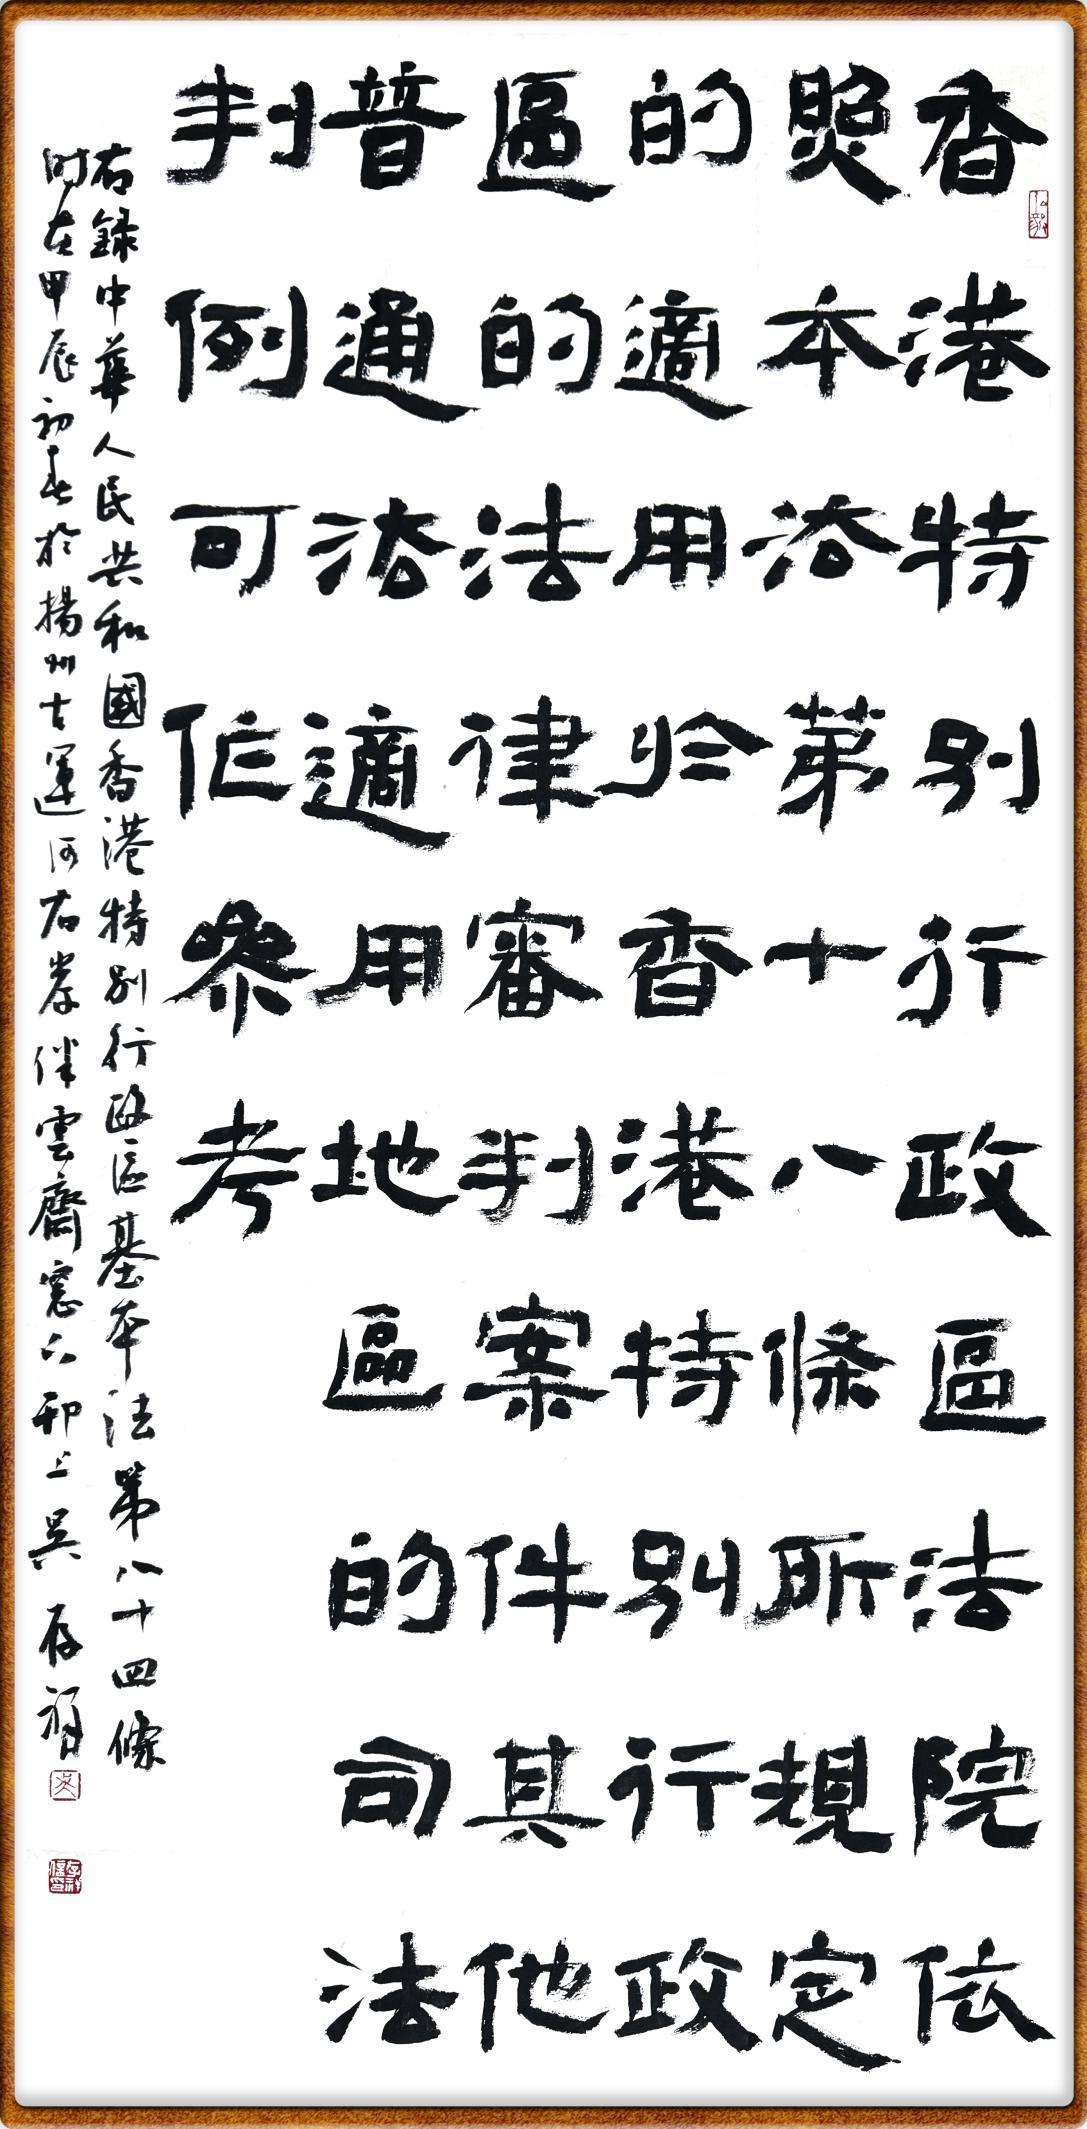 香港特別行政區法院依
照本法第十八條所規定
的適用於香港特別行政
區的法律審判案件其他
普通法適用地區的司法
判例可作參考
右録中華人民共和國香港特別行政区基本法第八十四條
时在甲辰初春於揚州古運河右岸伴雲齋窓下邗上吴存
弘毅
吴